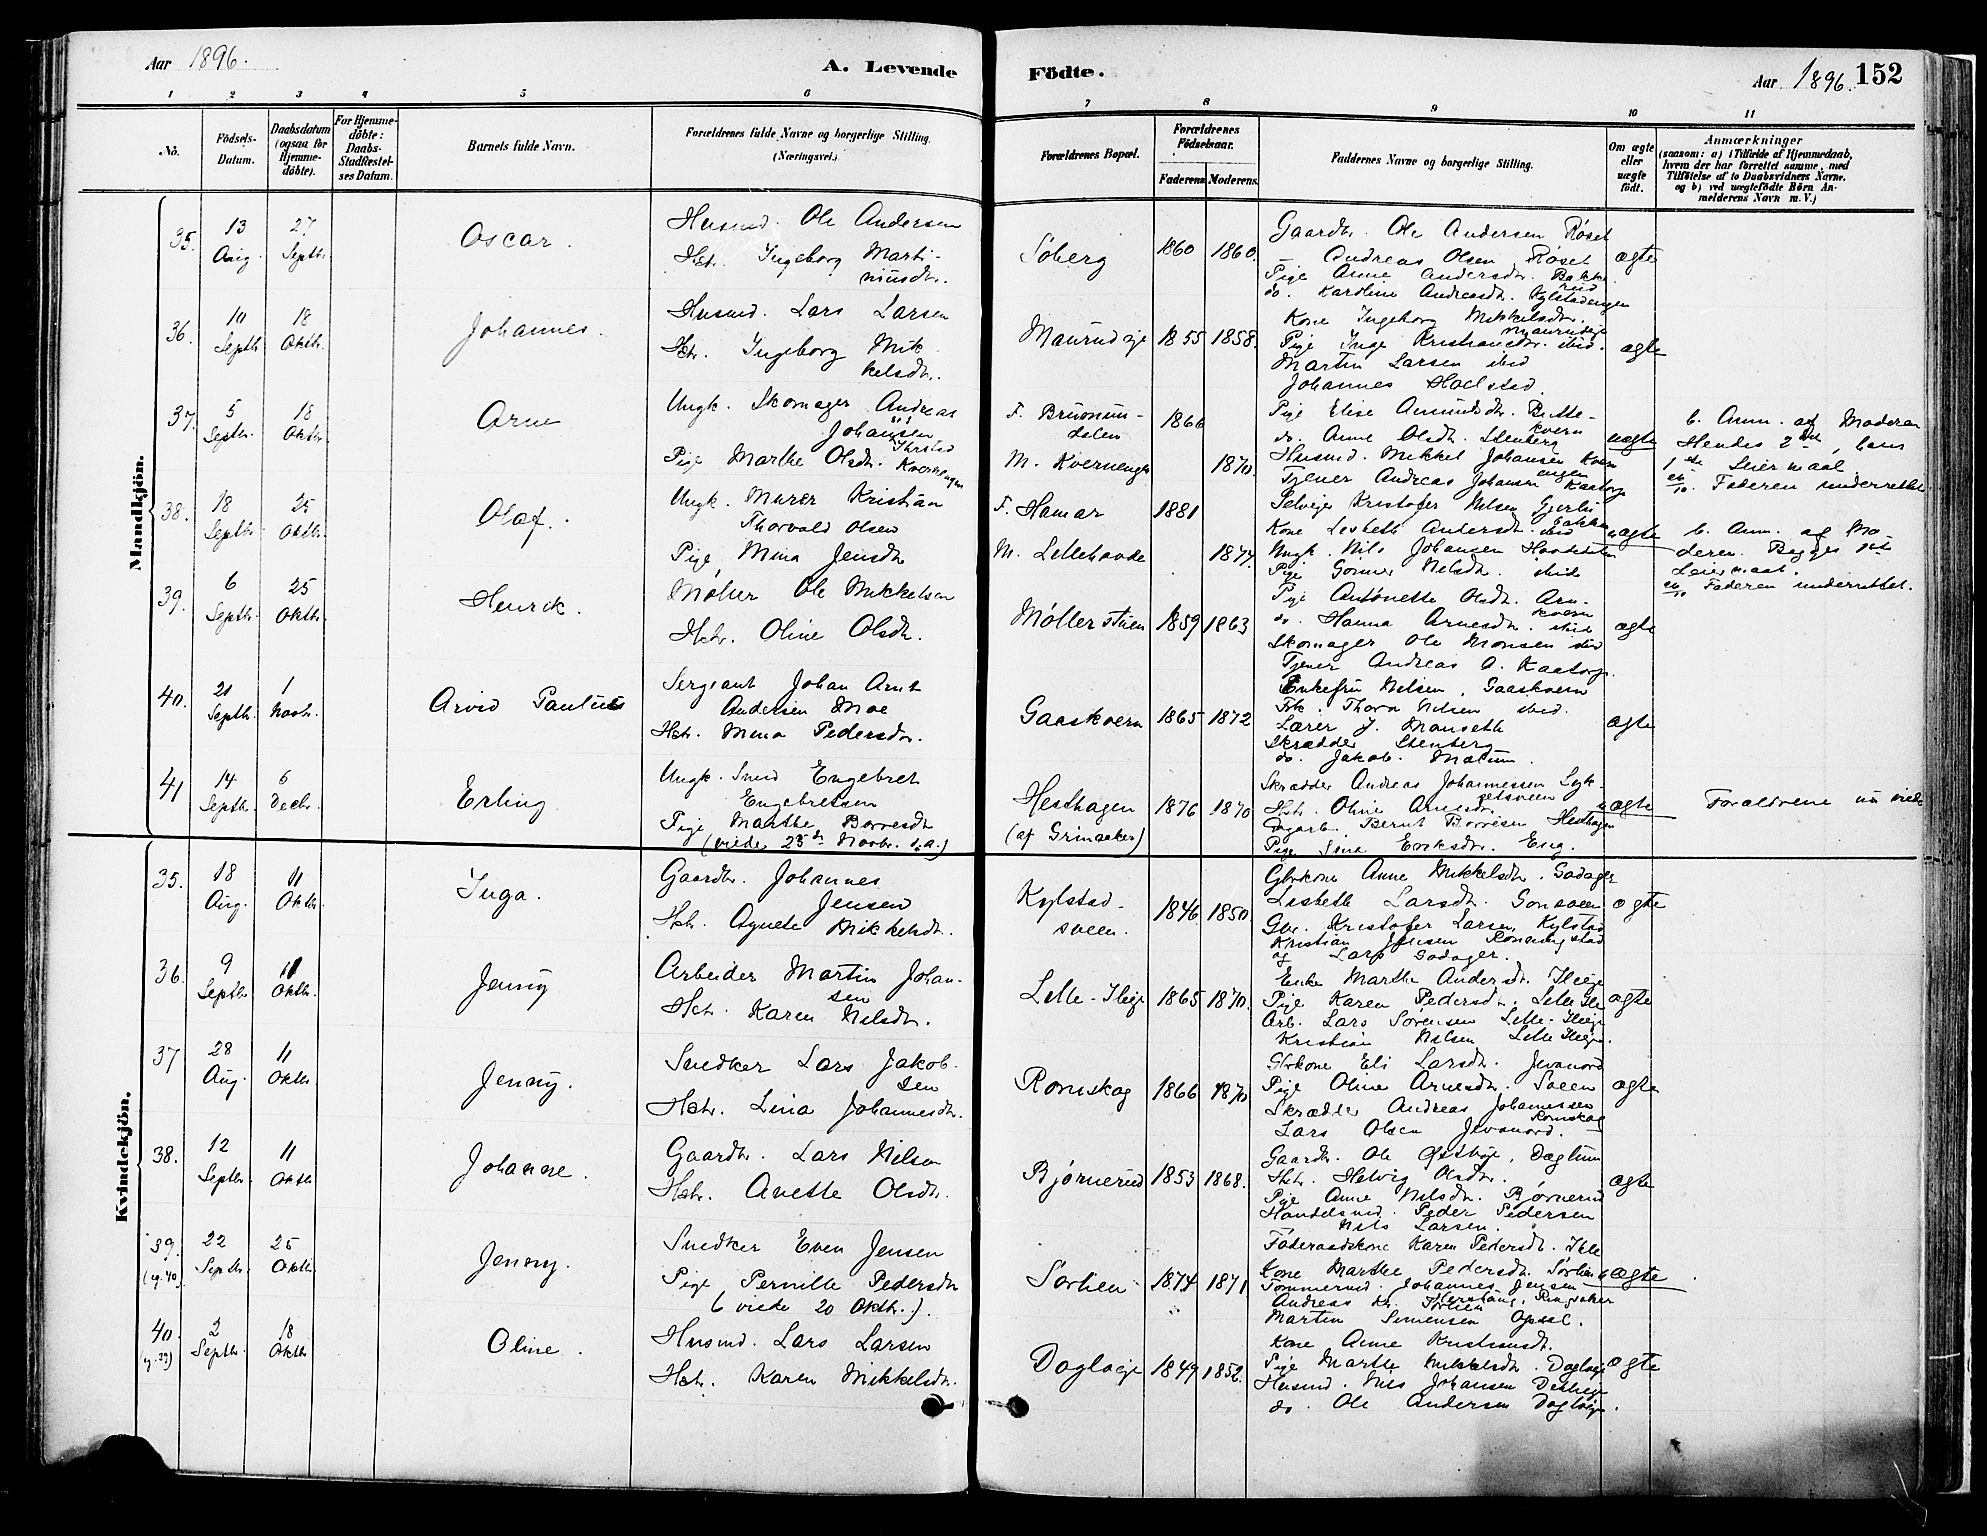 Aar 1896.
A. Levende
Födte.
Aar 1896.
152
1 2 3 4 5 6
7 8 9 10 11
No.
Födsels-Datum.
Daabsdatum (ogsaa for Hjemmedöbte).
For Hjemmedöbte: Daabs-Stadfæstelses Datum.
Barnets fulde Navn.
Forældrenes fulde Navne og borgerlige Stilling.
(Næringsvei.)
Forældrenes Bopæl.
Forældrenes Födselsaar.
Faderens. Moderens.
Faddernes Navne og borgerlige Stilling.
Om ægte eller uægte födt.
Anmærkninger
(saasom: a) i Tilfælde af Hjemmedaab,
hvem der har forrettet samme, med
Tilföielse af to Daabsvidners Navne,
og b) ved uægtefödte Börn An-
melderens Navn m. V.)
Mandkjön.
35. 13 Aug. 27 Septbr. Oscar.
Husmd. Ole Andersen
Hstr. Ingeborg Marti-
niusdr.
Soberg 1860 1860.
Gaardbr. Ole Andersen Røset
Andreas Olsen Røset
Pige Anne Andersdr. Bakke-
rud
do. Karoline Andreasdr. Kylstadengen
ægte
36. 10 Septbr. 18 Oktbr. Johannes.
Husmd. Lars Larsen
Hstr. Ingeborg Mik-
kelsdr.
Maurudeje 1855 1858.
Kone Ingeborg Mikkelsdr.
Maurudeje
Pige Inga Kristiansdr. ibid.
Martin Larsen ibid
Johannes
ægte
37. 5 Septbr. 18 Oktbr. Arne
Ungk. Skomager Andreas
Johansen
Pige Marthe Olsdr. Kvernengen
F. Bruvun-
dalen 1866
M. Kvernengen 1870.
Pige Elise Amundsdr. Butte-
kvern
do. Anne Olsdr. Stenberg
Husmd. Mikkel Johansen Kvern
engen
Tjener Andreas Johansen Kaatorp
uægte
b. Anm. af Moderen
Hendes 2det, hans
1ste Leiermaal
Faderen underrettet
38. 18 Septbr. 25 Oktbr. Olaf.
Ungk. Murer Kristian
Thorvald Olsen
Pige Mina Jensdr
F. Hamar 1881
M. Lillehovde 1877.
Selvejer Kristofer Nilsen Gjerlu
bakken
Kone Lisbeth Andersdr. ibid
Ungk. Nils Johansen
Pige Gonner Nilsdr. ibid
uægte
b. Anm. af Mo-
deren. Begges 1ste
Leiermaal.
Faderen underrettet.
39. 6 Septbr. 25 Oktbr. Henrik.
Møller Ole Mikkelsen
Hstr. Oline Olsdr.
Møllerstuen 1859 1863
Pige Antonette Olsdr. Arn-
kvern
do. Hanna Arnesdr. ibid
Skomager Ole Monsen ibid
Tjener Andreas A. Kaatorp.
ægte
40. 21 Septbr. 1 Novbr. Arvid Paulus
Sergeant Johan Arnt
Andersen Moe
Hstr. Mina Pedersdr.
Gaaskvern 1865 1872
Enkefru Nilsen, Gaaskvern
Frk. Thora Nilsen ibid.
Lærer J. Manseth
Skrædder Stenberg
do. Jakob. Mælum.
ægte
41 14 Septbr. 6 Decbr. Erling
Ungk. Smed Engebret
Engebretsen
Pige Marthe Borresdr
(viede 25de Novbr. d. a.)
Hesthagen
(af Grimaker) 1876 1870
Skrædder Andreas Johannessen Lyk-
Hstr. Oline Arnesdr.
Dagarb. Bernt Borresen Hesthagen
Pige Sina Eriksdr. Eng.
uægte
Forældrene nu viede
Kvindekjön.
35. 18 Aug. 11 Oktbr. Inga.
Gaardbr. Johannes
Jensen
Hstr. Agnete Mikkelsdr.
Kylstad-
sveen. 1846 1850.
Gbrkone Anne Mikkelsdr. Godager
Lisbeth Larsdr. Gonsveen
Gbr. Kristofer Larsen Kylstad
Kristian Jensen
og Lars Godager.
ægte
36. 9 Septbr. 11 Oktbr. Jenny
Arbeider Martin Johan-
sen
Hstr. Karen Nilsdr.
Lille-Ileje 1865 1870.
Enke Marthe Andersdr. Ileeje
Pige Karen Pedersdr. Lille Ile
Arb. Lars Sørensen Lille-Ileeje
Kristian Nilsen Lille Ileeje.
ægte
37 28 Aug. 11 Oktbr. Jenny.
Snedker Lars Jakob-
sen
Hstr. Lina Johannesdr.
Romskog 1866 1870
Gbrkone Eli Larsdr. Jevanord
Pige Oline Arnesdr. Sveen
Skrædder Andreas Johannessen
Romskog
Lars Olsen Jevanord.
ægte
38. 12 Septbr. 11 Oktbr. Johanne.
Gaardbr. Lars Nilsen
Hstr. Anette Olsdr.
Bjørnerud 1853 1868.
Gaardbr. Ole Østbye, Dæglum
Hstr. Helvig Olsdr.
Pige Anne Nilsdr. Bjørnerud
Handelsmd. Peder Pedersen
Nils Larsen.
ægte
39. (eg. 40) 22 Septbr. 25 Oktbr. Jenny.
Snedker Even Jensen
Pige Pernille Pedersdr
(viede 20 Oktbr.).
Sorlien 1874 1871
Føderaadskone Karen Pedersdr. Ile
Kone Marthe Pedersdr. Sorlien
Tømmermd. Johannes Jensen
Andreas Kr. Sorlien
Ringsaker
Martin Simensen Opsal.
uægte
40. (eg. 39) 2 Septbr. 18 Oktbr. Oline.
Husmd. Lars Larsen
Hstr. Karen Mikkelsdr.
Dagloeje 1849 1852.
Kone Anne Kristiansdr.
Pige Marthe Mikkelsdr. Dagloeje
Husmd. Nils Johansen
do. Ole Andersen Dagloeje.
ægte